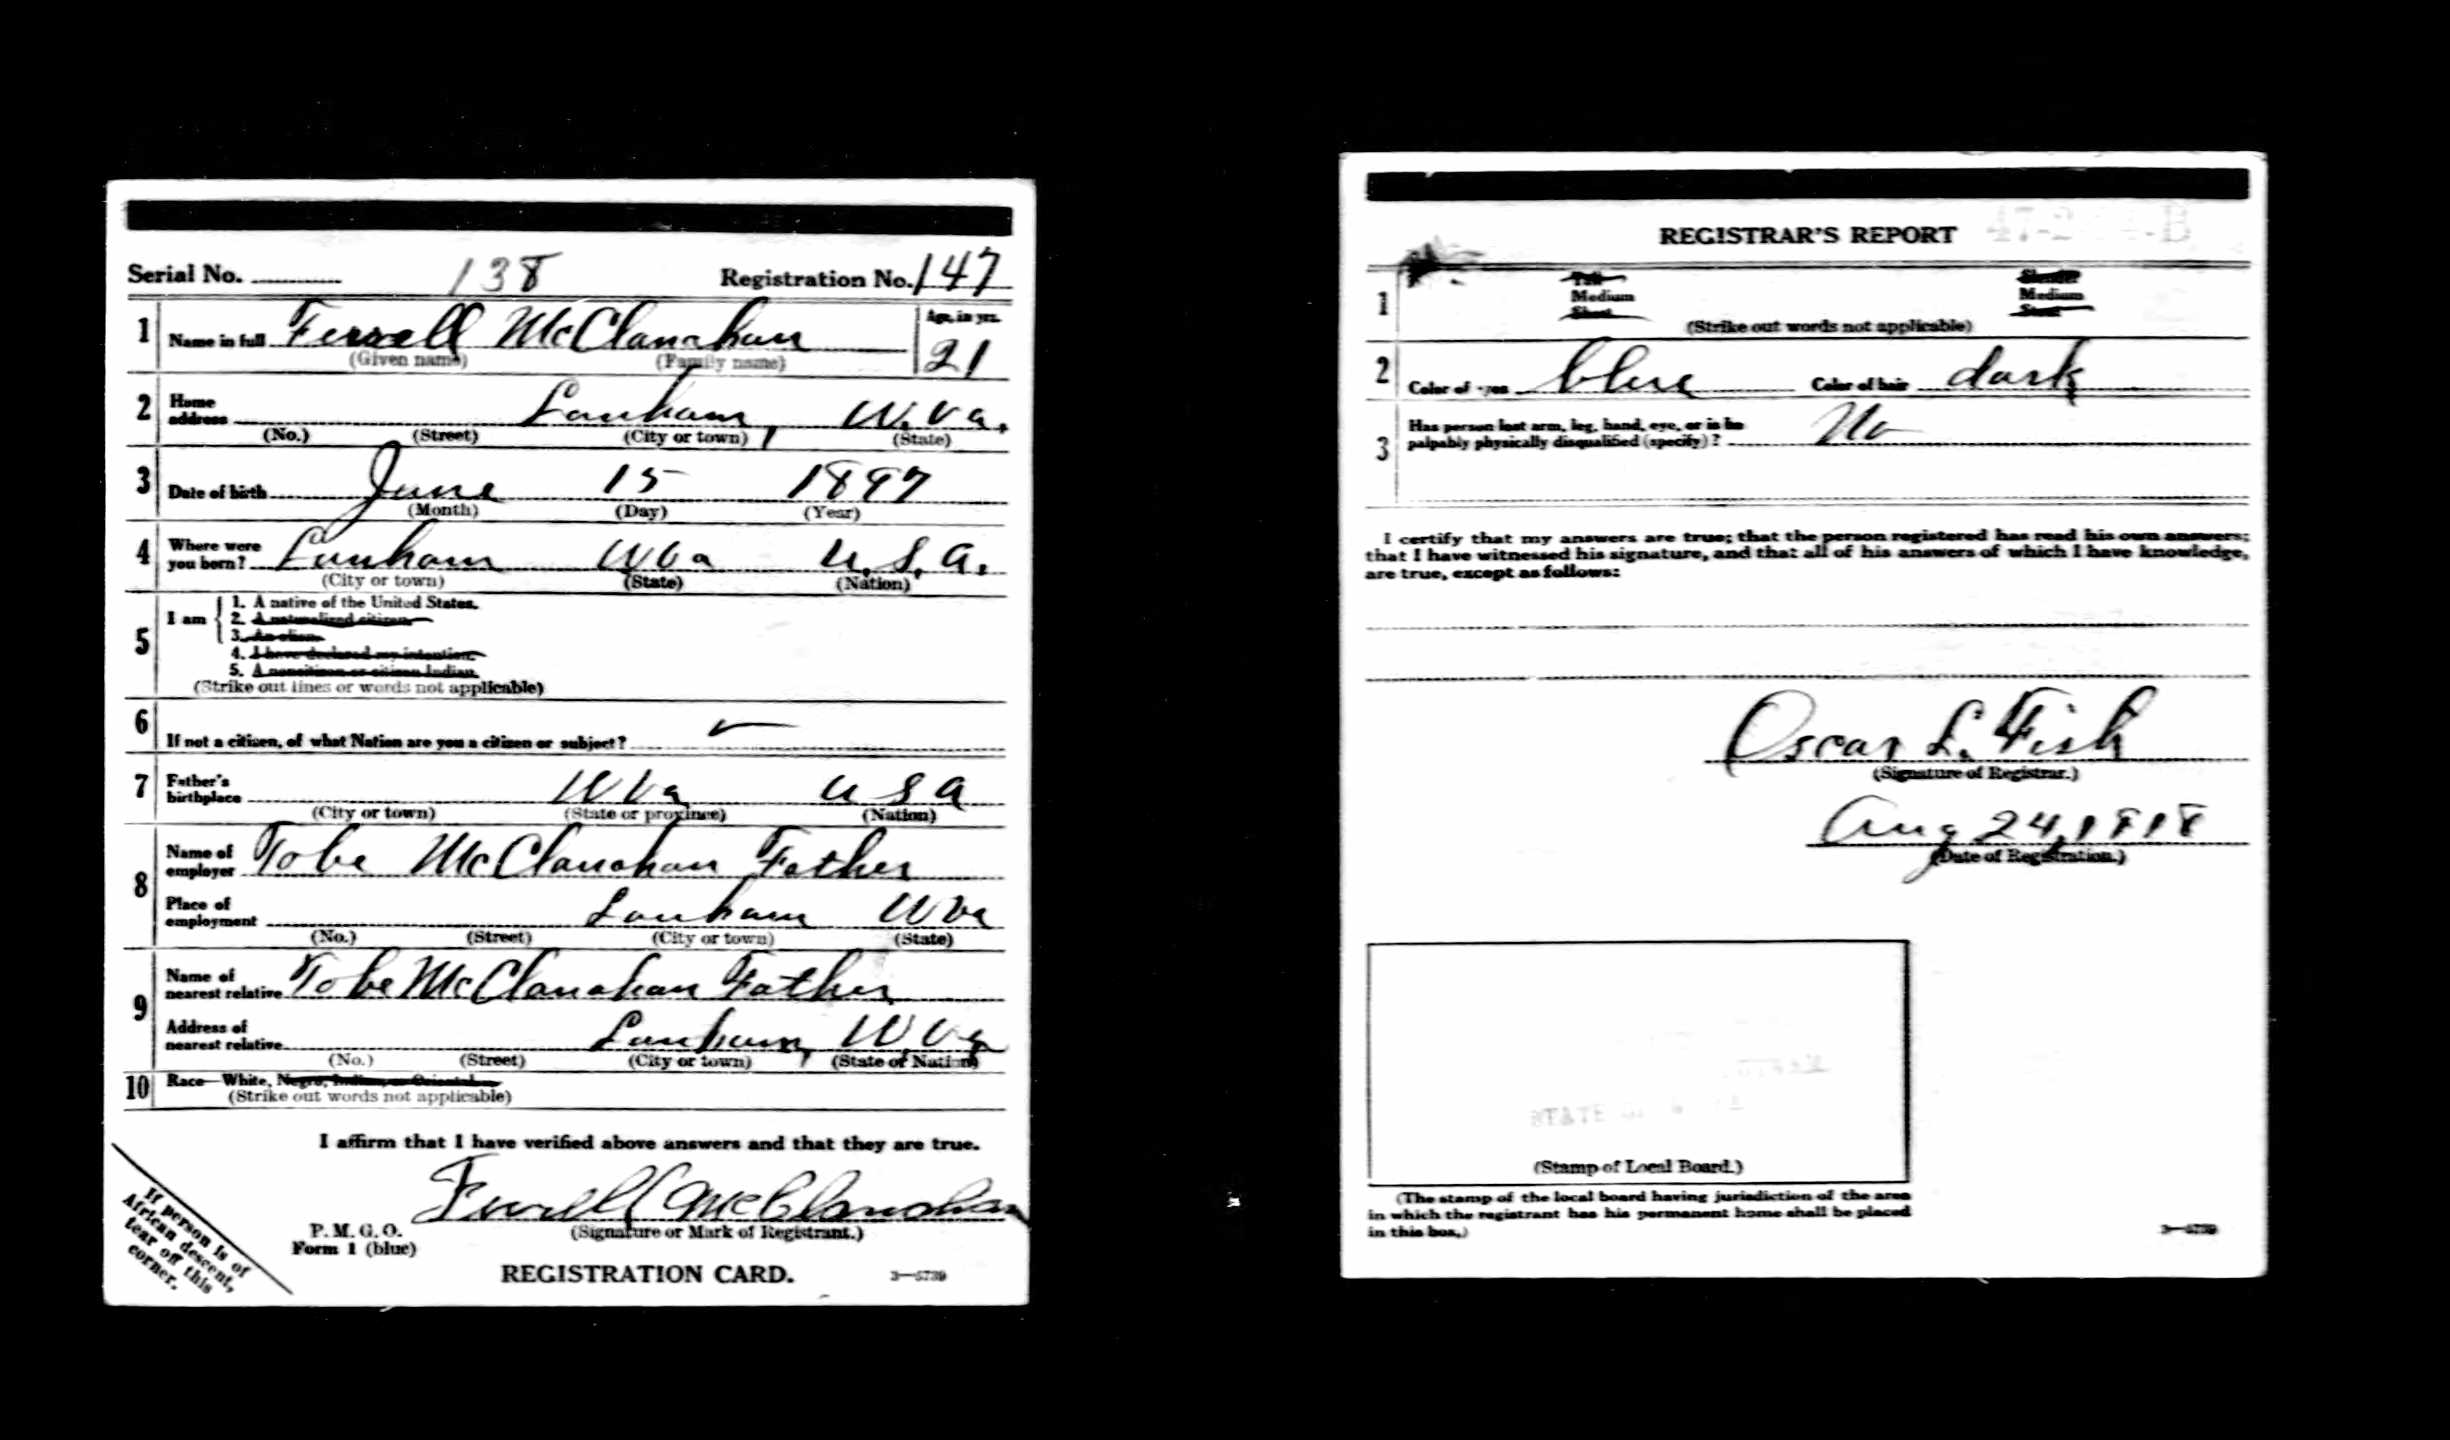 Serial No. 138 Registration No. 147
1 Name in full Ferrell McClanahan Age, in yrs.
(Given name) (Family name) 21
2 Home address Lanham, W.Va.
(No.) (Street) (City or town) (State)
3 Date of birth June 15 1897
(Month) (Day) (Year)
4 Where were you born? Lanham WVa U.S.A.
(City or town) (State) (Nation)
5 I am
1. A native of the United States.
2. A naturalized citizen.
3. An alien.
4. I have declared my intention.
5. A noncitizen or citizen Indian.
(Strike out lines or words not applicable)
6 If not a citizen, of what Nation are you a citizen or subject?
7 Father's birthplace WVa USA
(City or town) (State or province) (Nation)
8 Name of employer Tobe McClanahan Father
Place of employment Lanham WVa
(No.) (Street) (City or town) (State)
9 Name of nearest relative Tobe McClanahan Father
Address of nearest relative Lanham, W.Va
(No.) (Street) (City or town) (State or Nation)
10 Race—White, Negro, Indian, or Oriental.
(Strike out words not applicable)
I affirm that I have verified above answers and that they are true.
Ferrell McClanahan
P. M. G. O. (Signature or Mark of Registrant.)
Form 1 (blue)
REGISTRATION CARD. 3—5739
If person is of
African descent,
tear off this
corner.
REGISTRAR'S REPORT
1 Tall Slender
Medium Medium
Short Stout
(Strike out words not applicable)
2 Color of eyes blue Color of hair dark
3 Has person lost arm, leg, hand, eye, or is he
palpably physically disqualified (specify)? No
I certify that my answers are true; that the person registered has read his own answers;
that I have witnessed his signature, and that all of his answers of which I have knowledge,
are true, except as follows:
Oscar L. Fish
(Signature of Registrar.)
Aug 24, 1918
(Date of Registration.)
(Stamp of Local Board.)
(The stamp of the local board having jurisdiction of the area
in which the registrant has his permanent home shall be placed
in this box.)
3—5739